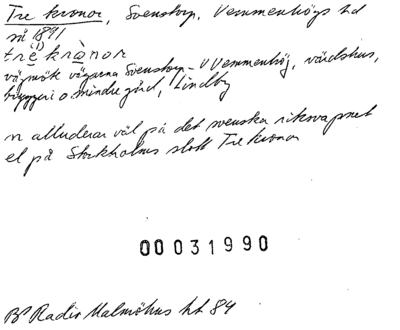 Tre kronor, Svenstorp, Vemmenhögs hd
så 1891
trè(i) krànor
vägmöte vägarna Svenstorp - V Vemmenhög, värdshus,
bryggeri o mindre gård, Lindby
n alluderar väl på det svenska riksvapnet
el på Stockholms slott Tre kronor
00031990
BP Radio Malmöhus ht 84